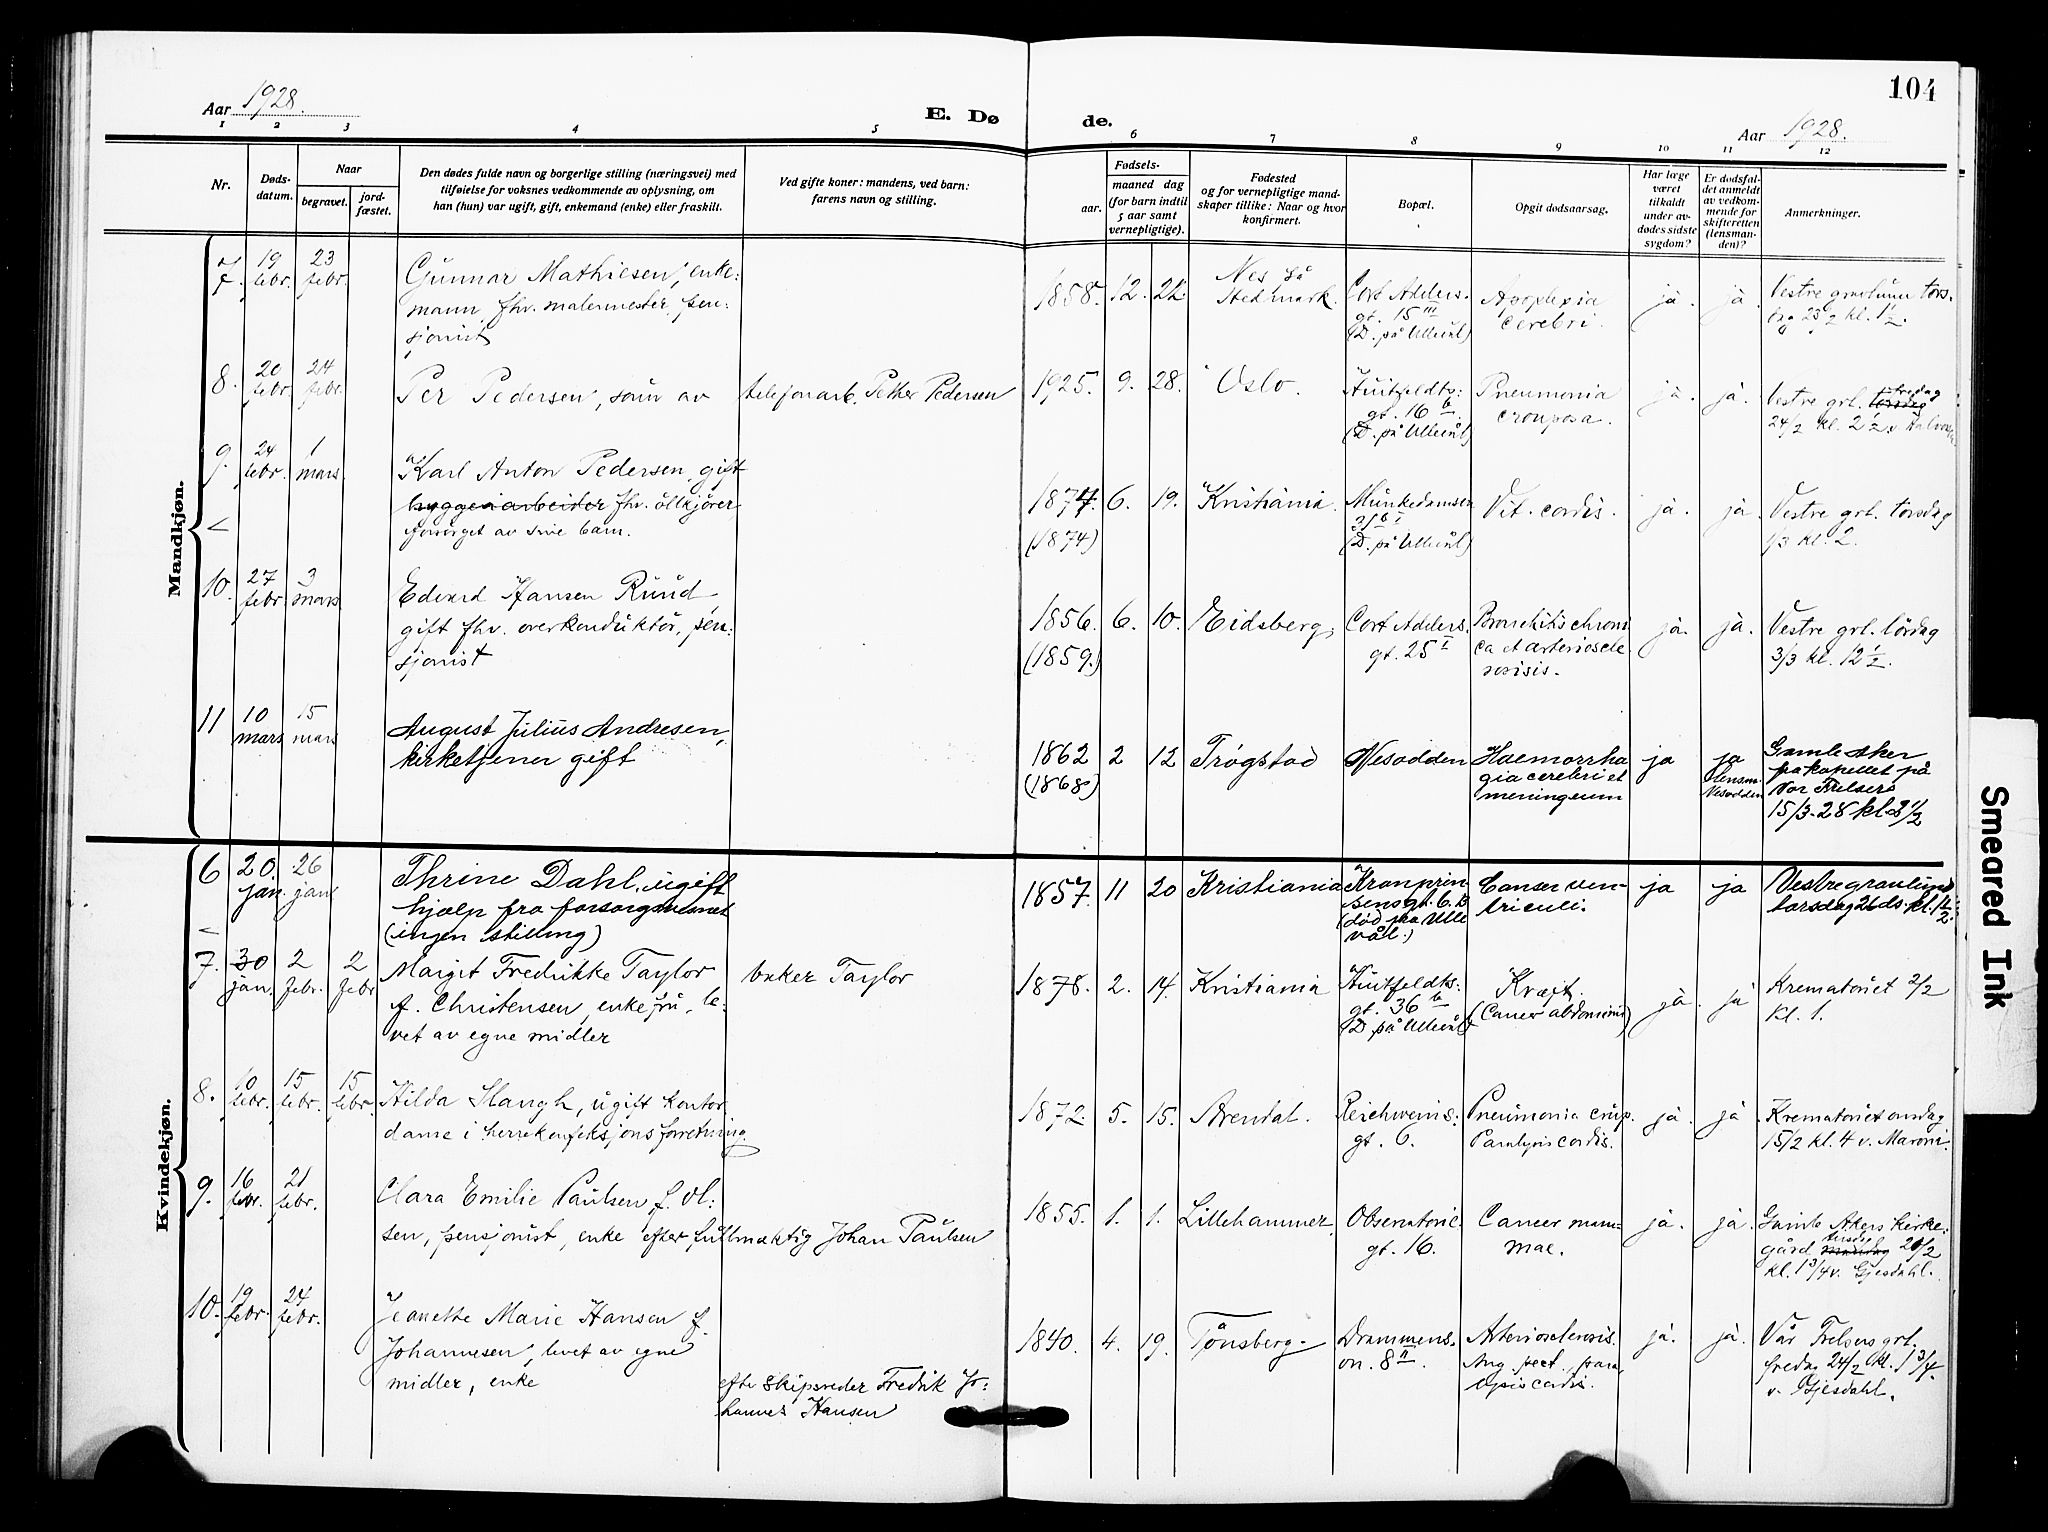 104
Aar 1928.
E. Døde.
Aar 1928.
1 2 3 4 5 6 7 8 9 10 11 12
Nr.
Dødsdatum.
Naar
begravet.
jordfæstet.
Den dødes fulde navn og borgerlige stilling (næringsvei) med
tilføielse for voksnes vedkommende av oplysning, om
han (hun) var ugift, gift, enkemand (enke) eller fraskilt.
Ved gifte koner: mandens, ved barn:
farens navn og stilling.
Fødsels-
aar.
maaned dag
(for barn indtil
5 aar samt
vernepligtige).
Fødested
og for vernepligtige mand-
skaper tillike: Naar og hvor
konfirmert.
Bopæl.
Opgit dødsaarsag.
Har læge
været
tilkaldt
under av-
dødes sidste
sygdom?
Er dødsfal-
det anmeldt
av vedkom-
mende for
skifteretten
(lensman-
den)?
Anmerkninger.
Mandkjøn.
7. 19 febr. 23 febr.
Gunnar Mathiesen, enke-
mann, fhv. malermester, pen-
sjonist
1858. 12. 22.
Nes på
Hedmark.
Cort Adders.
gt. 15 III
(D. på Ullevål)
Apoplexia
cerebri.
ja. ja.
Vestre gravlund tors-
dag 23/2 kl. 1 1/2.
8. 20 febr. 24 febr.
Per Pedersen, sønn av telefonarb. Petter Pedersen
1925. 9. 28. Oslo.
Huitfeldts:
gt. 16 b
(D. på Ullevål)
Pneumonia
crouposa.
ja. ja.
Vestre grl. torsdag fredag
24/2 kl. 2 1/2
9. 24 febr. 1 mars
Karl Anton Pedersen, gift
byggeiarbeider fhv. ölkjører,
forsörget av sine barn.
1877. 6. 19. Kristiania.
(1874)
Munkedamsv.
(D. på Ullevål)
Vit. cordis.
ja. ja
Vestre grl. torsdag
1/3 kl. 2.
10. 27 febr. 3 mars
Edvard Hansen Ruud,
gift fhv. overkonduktör, pen:
sjonist
1856. 6. 10. Eidsberg,
(1859.)
Cort Adders.
gt. 25 I
Bronchitis chroni
ca et arterioscle
rosisis.
ja. ja.
Vestre grl. lördag
3/3 kl. 12 1/2.
11 10 mars 15 mars
August Julius Andresen,
kirketjener gift
1862 2 12 Trøgstad
(1868)
Nesodden
Haemorrha
gia cerebri et
meningeum
ja ja
lensm.
Nesodden
Gamle Aker
fra kapellet på
Vor Frelsers
15/3-28 kl. 2 1/2
Kvindekjøn.
6 20. jan. 26 jan
Thrine Dahl, ugift
hjælp fra forsorgsvesnet
(ingen stilling)
1857. 11 20 Kristiania
Kronprin
sensgt. 6. B
(død paa Ulle
vål.)
Canser ven-
triculi.
ja ja
Vestre gravlund
torsdag 26 ds. kl.
7. 30 jan. 2 febr. 2 febr
Margit Fredrikke Taylor
f. Christensen, enkefru, le-
vet av egne midler
Taylor
1878. 2. 14. Kristiania
Huitfeldts:
gt. 36 b
(D. på Ullevål)
Kræft.
(Cancer abdominis)
ja. ja
Krematoriet 2/2
kl. 1.
8. 10 febr. 15 febr. 15 febr
Hilda Haugh, ugift kontor
dame i herrekonfeksjonsforretning.
1872. 5. 15. Arendal.
Reichweins:
gt. 6.
Pneumonia crup.
Paralysis cordis.
ja ja
Krematoriet onsdag
15/2 kl. 4 v. Maroni.
9. 16 febr. 21 febr.
Clara Emilie Paulsen f. Ol:
sen, pensjonist, enke efter fullmæktig Johan Paulsen
1855. 1. 1. Lillehammer
Observatorie.
gt. 16.
Cancer mam-
mae.
ja. ja.
Gamle Akers kirke:
gård mandag tirsdag 21/2
kl. 1 3/4 v. Gjesdahl.
10. 19 febr. 24 febr.
Jeanette Marie Hansen f.
Johannesen, levet av egne
midler, enke
efte skipsreder Fredrik Jo:
hannes Hansen
1840. 4. 19. Tønsberg.
Drammens.
vn. 8 II.
Arteriosclerosis.
Ang. pect. para
lysis cordis.
ja. ja.
Vår Frelsers grl.
fredag 24/2 kl. 1 3/4
v. Gjesdahl.
Smeared Ink